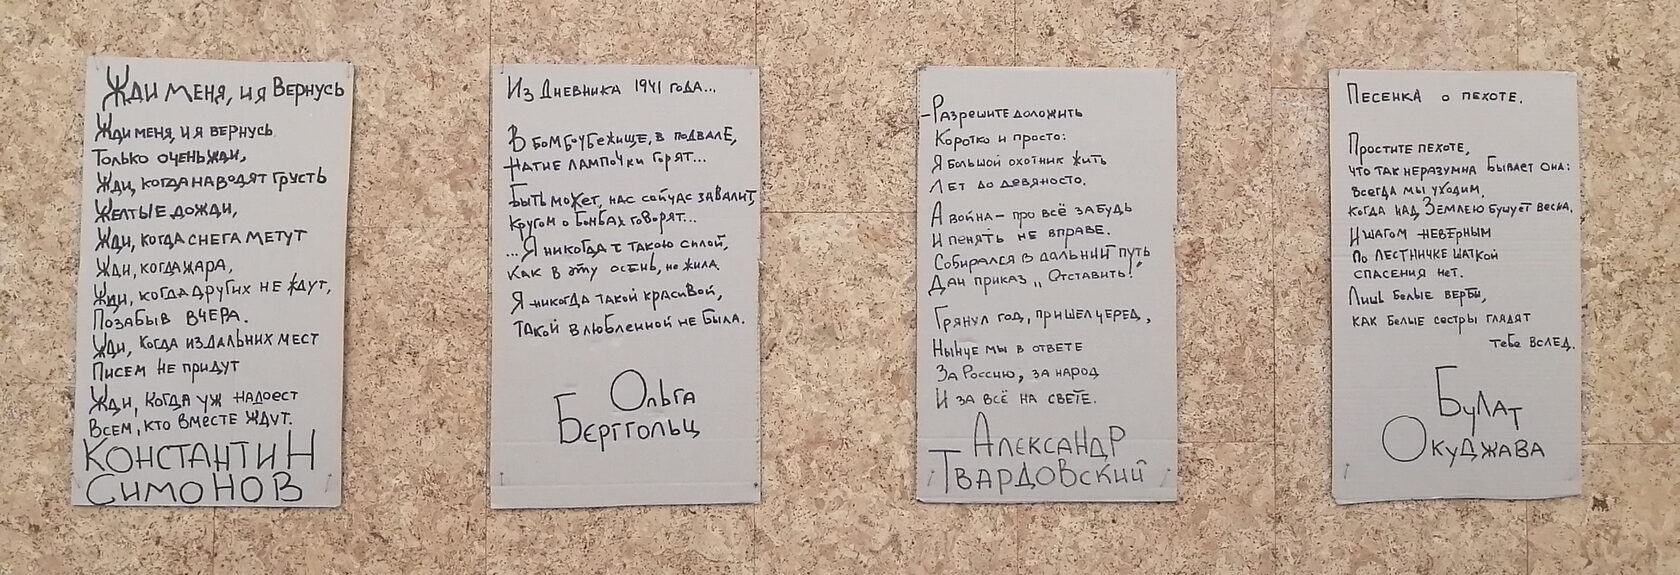 Жди меня, и я вернусь
Жди меня, и я вернусь.
Только очень жди,
Жди, когда наводят грусть
Желтые дожди,
Жди, когда снега метут
Жди, когда жара,
Жди, когда других не ждут,
Позабыв вчера.
Жди, когда из дальних мест
Писем не придут
Жди, когда уж надоест
Всем, кто вместе ждут.
Константин
Симонов
Из Дневника 1941 года...
В бомбоубежище, в подвале,
Нагие лампочки горят...
Быть может, нас сейчас завалит,
Кругом о бомбах говорят...
...Я никогда с такою силой,
Как в эту осень, не жила.
Я никогда такой красивой,
Такой влюбленной не была.
Ольга
Берггольц
–Разрешите доложить
Коротко и просто:
Я большой охотник жить
Лет до девяносто.
А война – про всё забудь
И пенять не вправе.
Собирался в дальний путь
Дан приказ „Отставить!"
Грянул год, пришел черед,
Нынче мы в ответе
За Россию, за народ
И за всё на свете.
Александр
Твардовский
Песенка о пехоте.
Простите пехоте,
что так неразумна бывает она:
всегда мы уходим,
когда над Землею бушует весна.
И шагом неверным
По лестничке шаткой
спасения нет.
Лишь белые вербы,
как белые сестры глядят
тебе вслед.
Булат
Окуджава